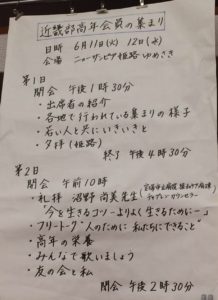 近畿部高年会員の集まり
日時 6月11日(火) 12日(水)
会場 ニューサンピア姫路ゆめさき
第1日
開会 午後1時30分
・出席者の紹介
・各地で行われている集まりの様子
・若い人と共にいきいきと
・夕拝(姫路)
終了 午後4時30分
第2日
開会 午前10時
・礼拝 沼野尚美先生(宝塚市立病院 緩和ケア病棟
チャプレン カウンセラー)
"今を生きるコツ-よりよく生きるために-"
・フリートーク"人のために私たちにできること"
・高年の栄養
・みんなで歌いましょう
・友の会と私
閉会 午後2時30分